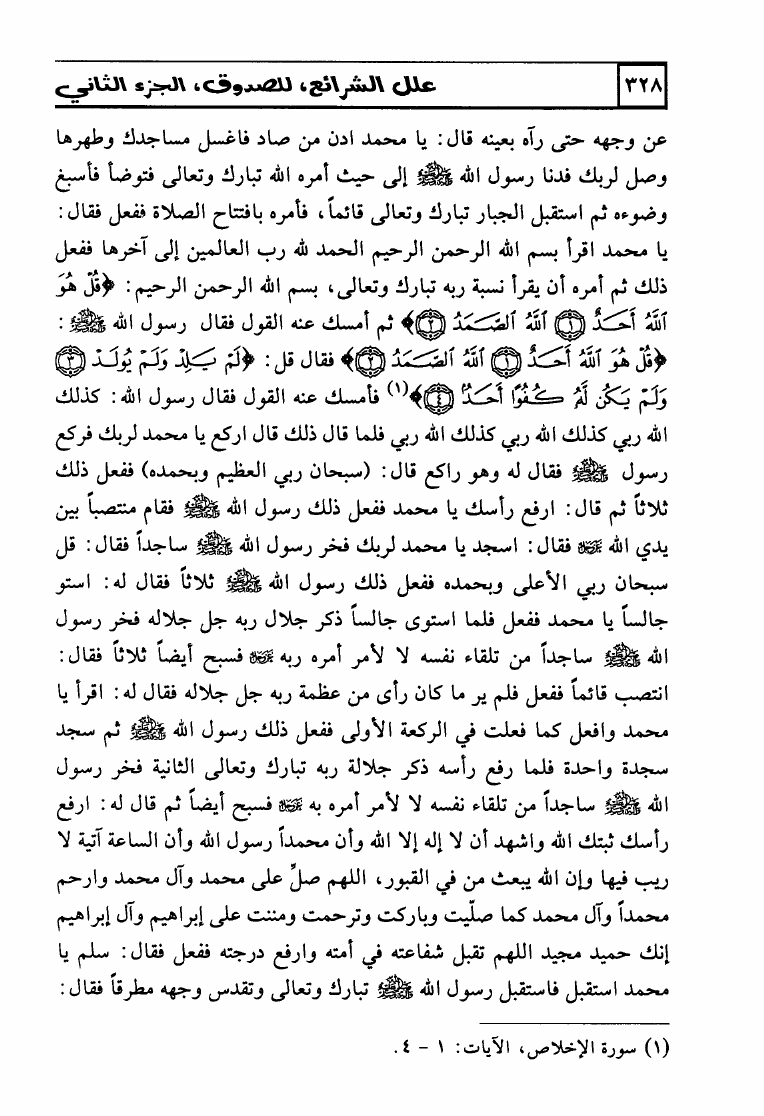 ٣٢٨ علل الشرائع، للصدوق، الجزء الثاني
عن وجهه حتى رآه بعينه قال: يا محمد ادن من صاد فاغسل مساجدك وطهرها
وصل لربك فدنا رسول الله ﷺ إلى حيث أمره الله تبارك وتعالى فتوضأ فأسبغ
وضوءه ثم استقبل الجبار تبارك وتعالى قائماً، فأمره بافتتاح الصلاة ففعل فقال:
يا محمد اقرأ بسم الله الرحمن الرحيم الحمد لله رب العالمين إلى آخرها ففعل
ذلك ثم أمره أن يقرأ نسبة ربه تبارك وتعالى، بسم الله الرحمن الرحيم: ﴿قُلْ هُوَ
ٱللَّهُ أَحَدٌ ١ ٱللَّهُ ٱلصَّمَدُ ٢﴾ ثم أمسك عنه القول فقال رسول الله ﷺ:
﴿قُلْ هُوَ ٱللَّهُ أَحَدٌ ١ ٱللَّهُ ٱلصَّمَدُ ٢﴾ فقال قل: ﴿لَمْ يَلِدْ وَلَمْ يُولَدْ ٣
وَلَمْ يَكُن لَّهُ كُفُوًا أَحَدٌ ٤﴾(١) فأمسك عنه القول فقال رسول الله: كذلك
الله ربي كذلك الله ربي كذلك الله ربي فلما قال ذلك قال اركع يا محمد لربك فركع
رسول ﷺ فقال له وهو راكع قال: (سبحان ربي العظيم وبحمده) ففعل ذلك
ثلاثاً ثم قال: ارفع رأسك يا محمد ففعل ذلك رسول الله ﷺ فقام منتصباً بين
يدي الله فقال: اسجد يا محمد لربك فخر رسول الله ﷺ ساجداً فقال: قل
سبحان ربي الأعلى وبحمده ففعل ذلك رسول الله ﷺ ثلاثاً فقال له: استو
جالساً يا محمد ففعل فلما استوى جالساً ذكر جلال ربه جل جلاله فخر رسول
الله ﷺ ساجداً من تلقاء نفسه لا لأمر أمره ربه فسبح أيضاً ثلاثاً فقال:
انتصب قائماً ففعل فلم ير ما كان رأى من عظمة ربه جل جلاله فقال له: اقرأ يا
محمد وافعل كما فعلت في الركعة الأولى ففعل ذلك رسول الله ﷺ ثم سجد
سجدة واحدة فلما رفع رأسه ذكر جلالة ربه تبارك وتعالى الثانية فخر رسول
الله ﷺ ساجداً من تلقاء نفسه لا لأمر أمره به فسبح أيضاً ثم قال له: ارفع
رأسك ثبتك الله واشهد أن لا إله إلا الله وأن محمداً رسول الله وأن الساعة آتية لا
ريب فيها وإن الله يبعث من في القبور، اللهم صلِّ على محمد وآل محمد وارحم
محمداً وآل محمد كما صلّيت وباركت وترحمت ومننت على إبراهيم وآل إبراهيم
إنك حميد مجيد اللهم تقبل شفاعته في أمته وارفع درجته ففعل فقال: سلم يا
محمد استقبل فاستقبل رسول الله ﷺ تبارك وتعالى وتقدس وجهه مطرقاً فقال:
(١) سورة الإخلاص، الآيات: ١ - ٤.